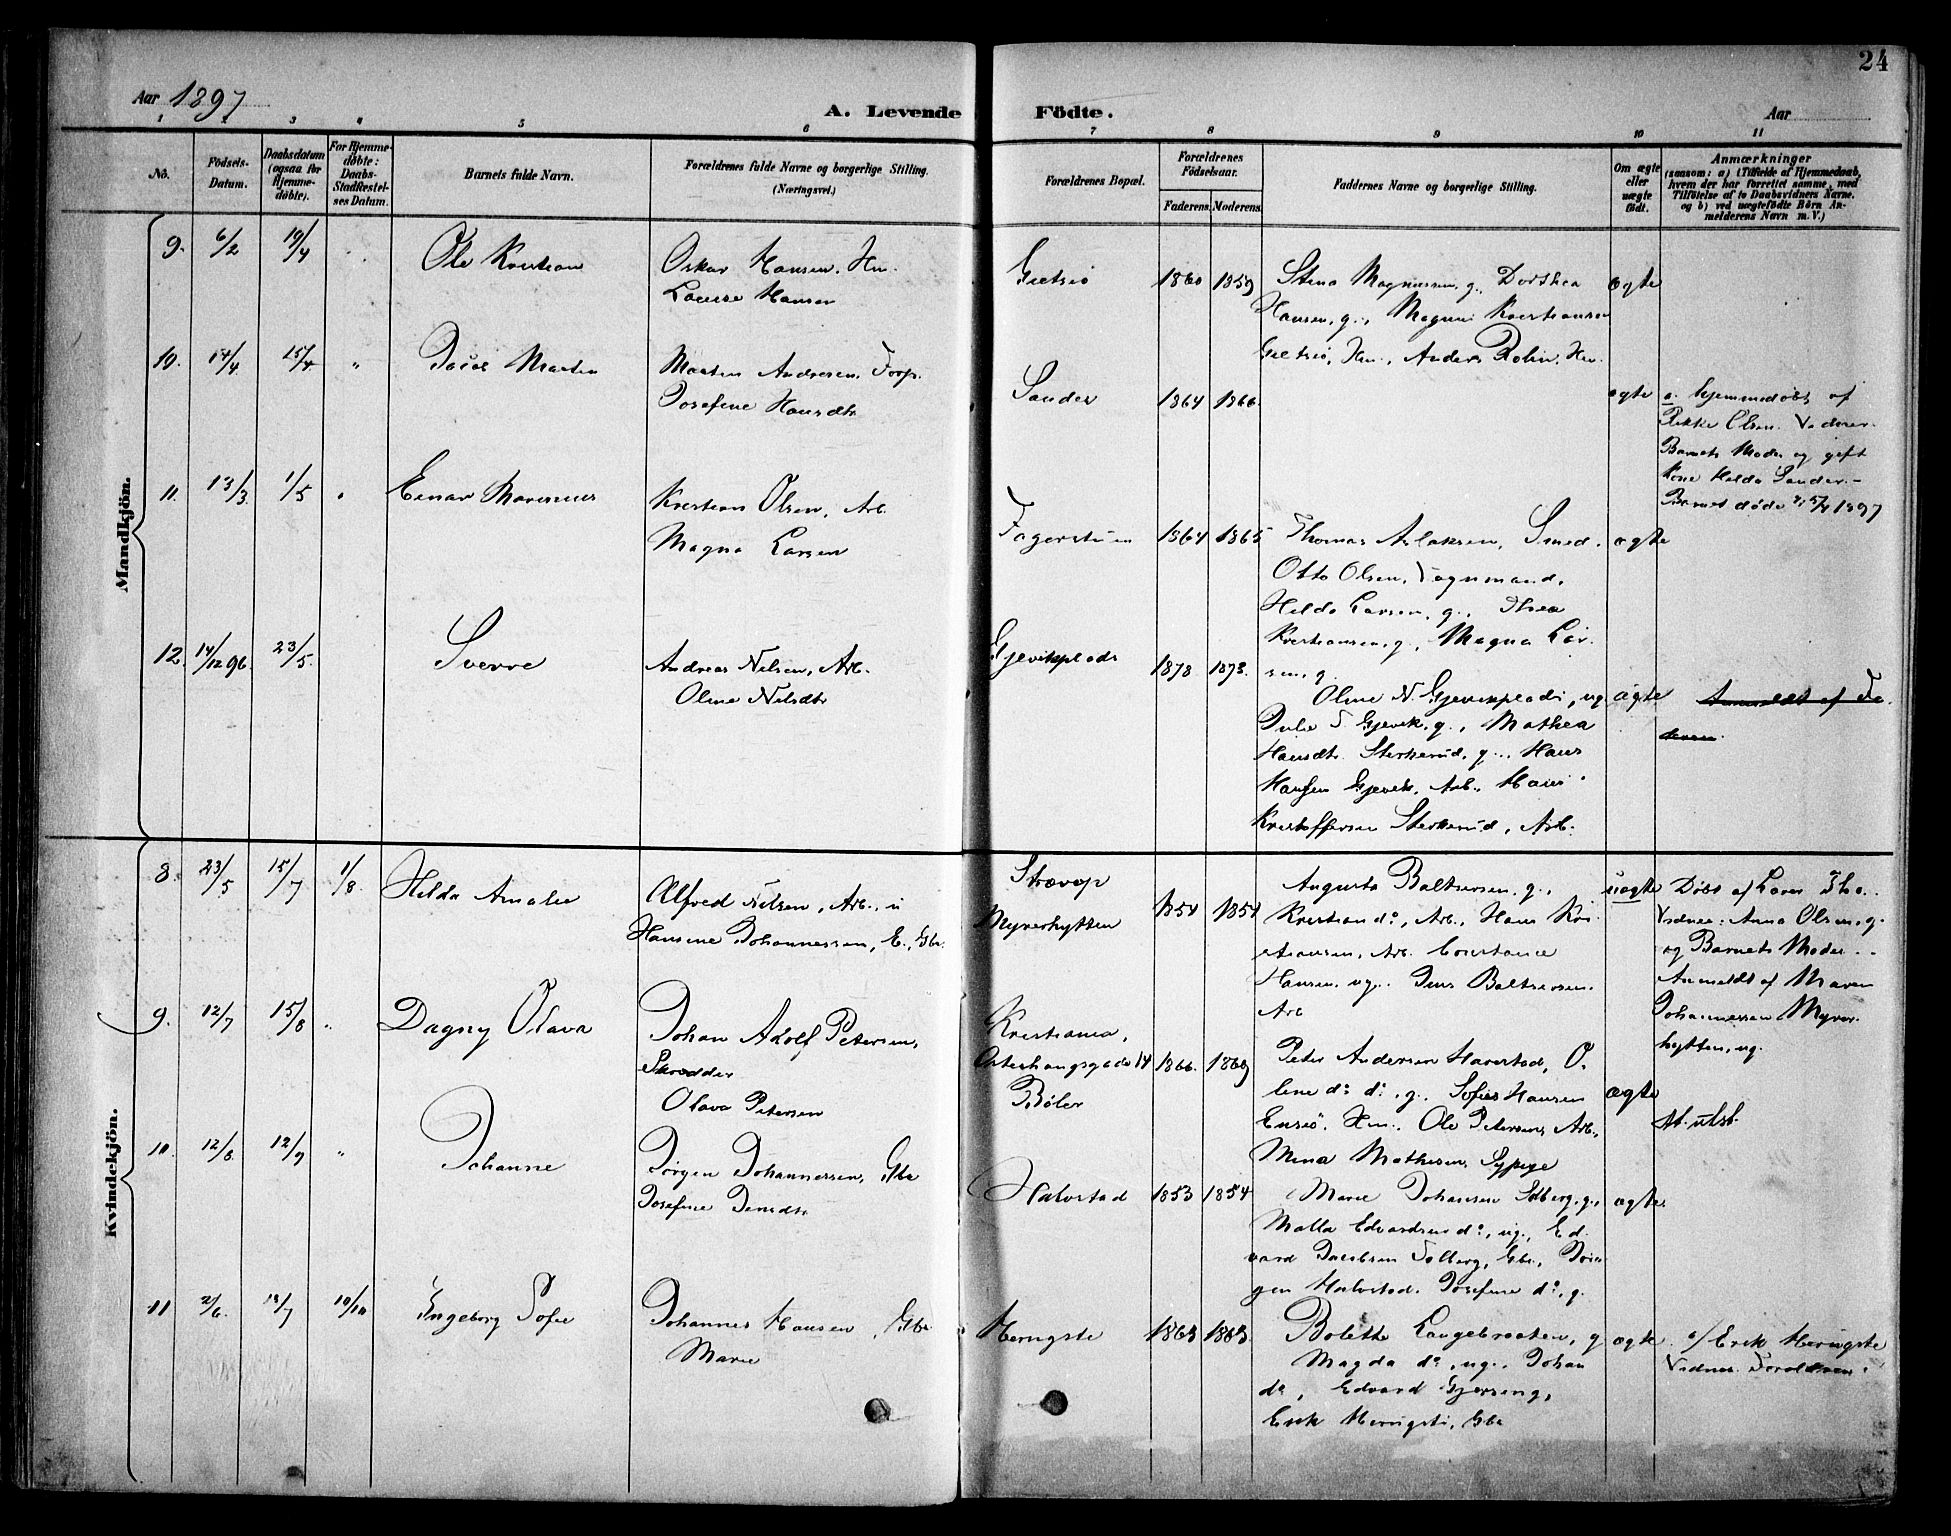 24
Aar 1897
A. Levende Födte.
Aar
1 2 3 4 5 6 7 8 9 10 11
No.
Födsels-
Datum.
Daabsdatum
(ogsaa for
Hjemme-
döbte).
For Hjemme-
döbte:
Daabs-
Stadfæstel-
ses Datum.
Barnets fulde Navn.
Forældrenes fulde Navne og borgerlige Stilling.
(Næringsvei.)
Forældrenes Bopæl.
Forældrenes
Födselsaar.
Faderens. Moderens.
Faddernes Navne og borgerlige Stilling.
Om ægte
eller
uægte
födt.
Anmærkninger
(saasom: a) (Tilfælde af Hjemmedaab,
hvem der har forrettet samme, med
Tilföielse af to Daabsvidners Navne.
og b) ved uægtefödte Börn An-
melderens Navn m. V.)
Mandkjön.
9. 6/2 19/4
Ole Kristian
Oskar Hansen, Hm.
Louise Hansen
1860 1859
Stina Magnussen, g., Dorthea
Hansen, g., Magnus Kristiansen
Anders Rolin, Hm.
ægte
10. 14/4 15/4 "
Jacob Martin
Martin Andresen, Forp.
Josefine Hansdtr
Sander
1864 1866
ægte
a. hjemmedøbt af
Rikke Olsen. Vidner
Barnets Moder og gift
Kone Helda Sander. -
Barnet døde 15/4 1897
11. 13/3 1/5 "
Einar Marinius
Kristian Olsen, Arb.
Magna Larsen
Fagerstuen
1864 1865
Thomas Aslaksen, Smed.
Otto Olsen, Vognmand,
Helda Larsen, g., Thea
Kristiansen, g., Magna Lar-
sen, g.
ægte
12. 14/12 96. 23/5.
Sverre
Andreas Nilsen, Arb.
Oline Nilsdtr
Gjevikplads
1878 1873.
Oline N. Gjevikplads, ug.
Julie T. Gjevik, g., Mathea
Hansdtr. Sterkerud, g., Hans
Hansen Gjevik, Arb., Hans
Kristoffersen Sterkerud, Arb.
ægte
Anmeldt af Fa-
deren.
Kvindekjön.
8. 23/5 15/7 1/8.
Helda Amalie
Alfred Nilsen, Arb., u
Hansine Johannessen, E., Gbr.
Myrerhytten
1854 1854
Augusta Baltsersen, g.,
Kristian do, Arb., Hans Kri-
stiansen, Arb. Constance
Hansen, ug., Jens Baltsersen.
Arb
uægte
Døbt af Lærer Tho..
Vidner: Anna Olsen, g.
og Barnets Moder..
Anmeldt af Maren
Johannessen Myrer-
hytten, ug.
9. 12/7 15/8 "
Dagny Olava
Johan Adolf Petersen,
Skrædder
Olava Petersen
Kristiania,
Østerhausgade 14
Bøler
1866. 1869
Peter Andersen Havestad, O-
line do do, g., Sofie Hansen
Ensiö, Hm., Ole Petersen, Arb.,
Mina Mathisen, Sypige
ægte
At. utst.
10. 12/8. 12/9 "
Johanne
Jørgen Johannessen, Gbr
Josefine Jensdtr
Halvstad
1853 1854
Marie Johansen Solberg, g.,
Malla Edvardsen do, ug., Ed-
vard Jacobsen Solberg, Gbr., Jør-
gen Halvstad. Josefine do, g.
ægte.
11 2/6. 18/7 10/10
Ingeborg Sofie
Johannes Hansen, Gbr
Marie
Herrigste
1863 1863
Bolette Langebraaten, g
Magda do, ug., Johan
do, Edvard Gjersing,
Erik Herrigsti, Gbr
ægte
a/ Erik Herrigste
Vidner Forældrene.